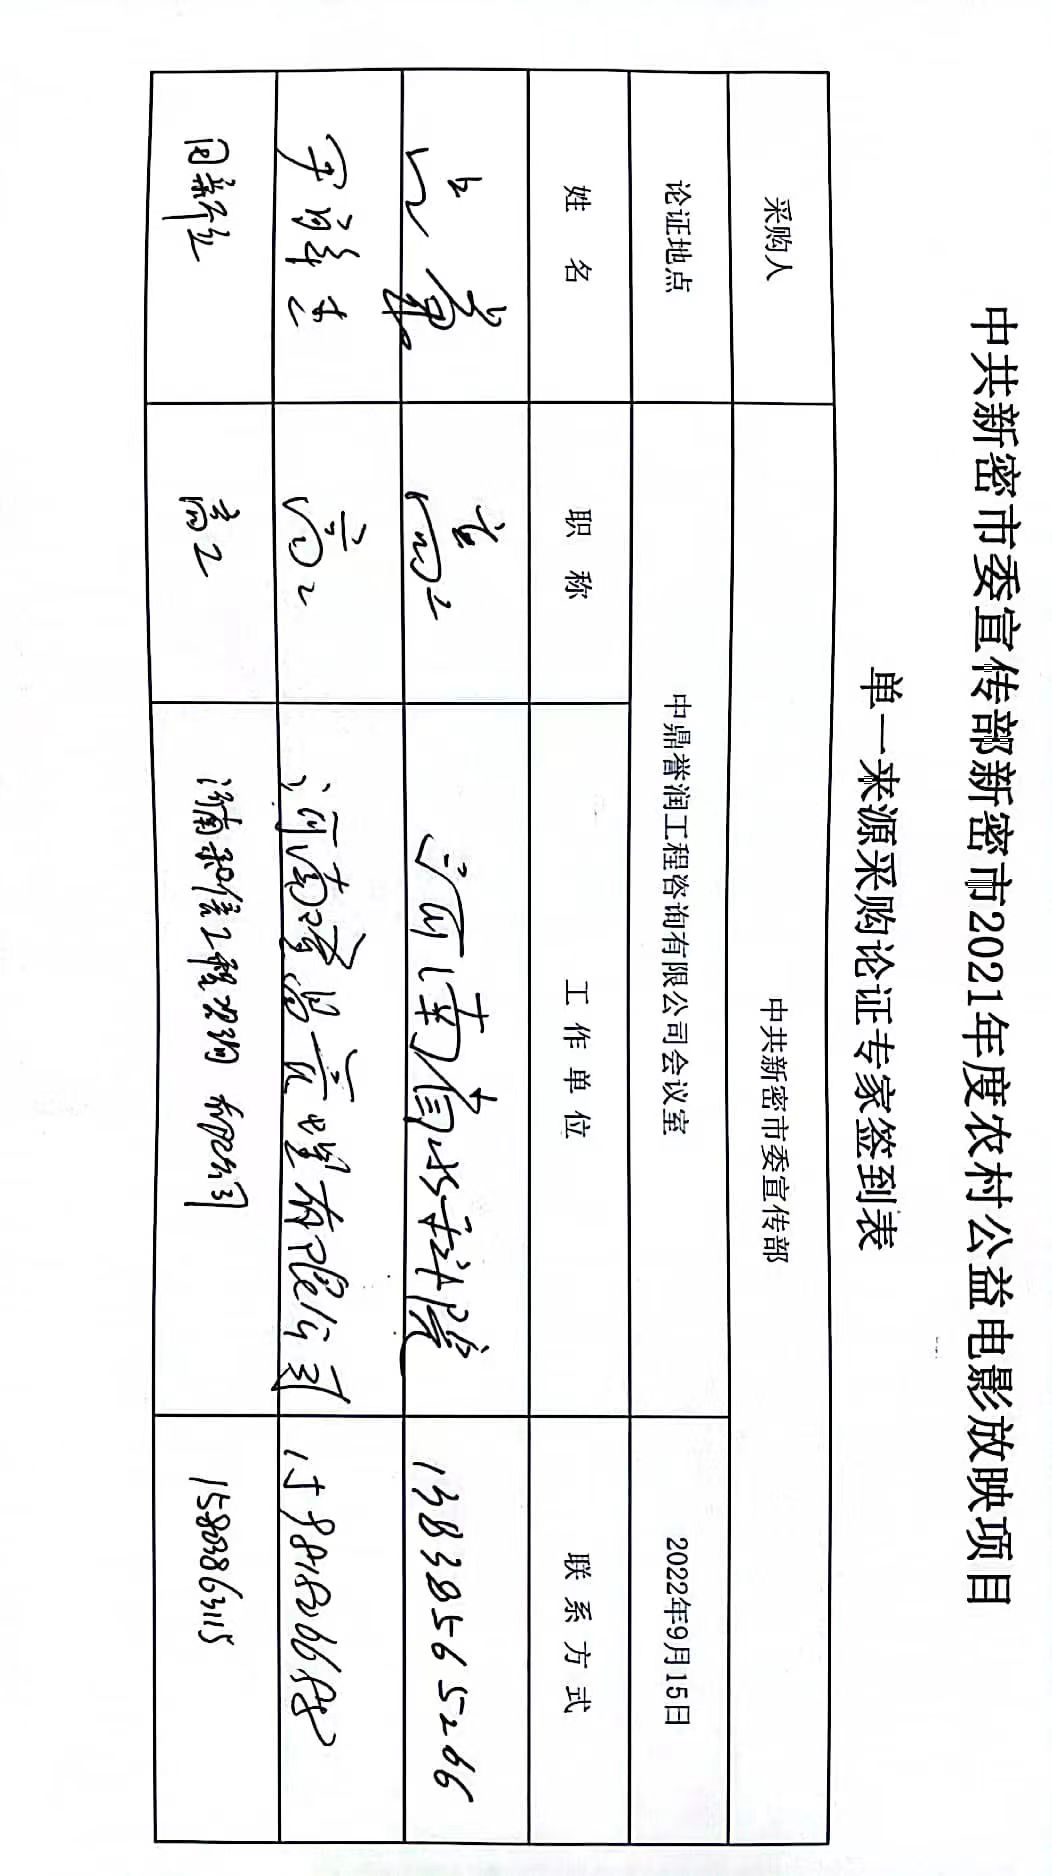 中共新密市委宣传部新密市2021年度农村公益电影放映项目
单一来源采购论证专家签到表
采购人 中共新密市委宣传部
论证地点 中鼎誉润工程咨询有限公司会议室 2022年9月15日
姓名 职称 工作单位 联系方式
高工 河南省 13838565266
高工 河南 有限公司
高工 济南和信工程咨询有限公司 15803863115